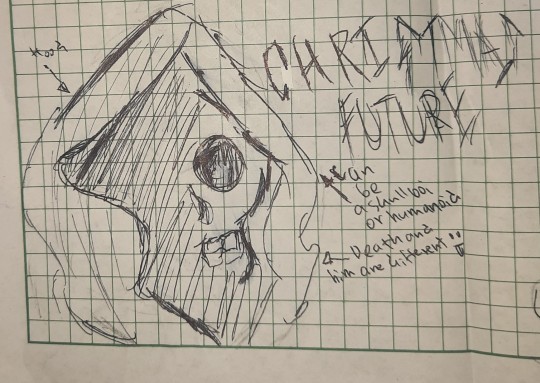 Hood
CHRISTMAS
FUTURE
Can
be
a skullboi
or humanoid
Death and
him are different!!